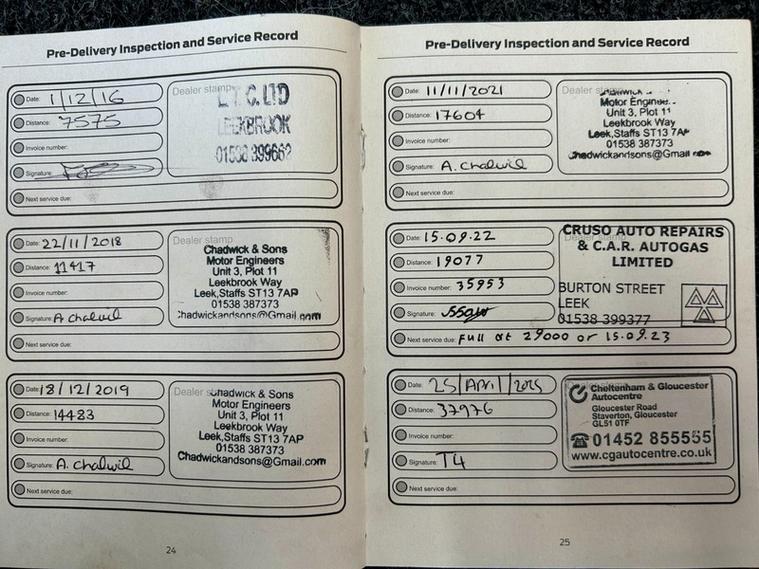 Pre-Delivery Inspection and Service Record
Date: 1/12/16
Distance: 7575
Invoice number:
Signature:
Next service due:
Dealer stamp
C. LTD
LEEKBROOK
01538 399662
Date: 22/11/2018
Distance: 11417
Invoice number:
Signature: A Chalwil
Next service due:
Dealer stamp
Chadwick & Sons
Motor Engineers
Unit 3, Plot 11
Leekbrook Way
Leek,Staffs ST13 7AP
01538 387373
Chadwickandsons@Gmail.com
Date: 18/12/2019
Distance: 14483
Invoice number:
Signature: A. Chalwil
Next service due:
Dealer
Chadwick & Sons
Motor Engineers
Unit 3, Plot 11
Leekbrook Way
Leek,Staffs ST13 7AP
01538 387373
Chadwickandsons@Gmail.com
24
Pre-Delivery Inspection and Service Record
Date: 11/11/2021
Distance: 17604
Invoice number:
Signature: A. Chalwil
Next service due:
Dealer stamp
Chadwick
Motor
Unit 3, Plot 11
Leekbrook Way
Leek,Staffs ST13 7AP
01538 387373
Chadwickandsons@Gmail.com
Date: 15.09.22
Distance: 19077
Invoice number: 35953
Signature:
Next service due: Full at 29000 or 15.09.23
Dealer stamp
CRUSO AUTO REPAIRS
& C.A.R. AUTOGAS
LIMITED
BURTON STREET
LEEK
01538 399377
Date: 25/April/2025
Distance: 37976
Invoice number:
Signature: T4
Next service due:
Cheltenham & Gloucester
Autocentre
Gloucester Road
Staverton, Gloucester
GL51 0TF
01452 855555
www.cgautocentre.co.uk
25